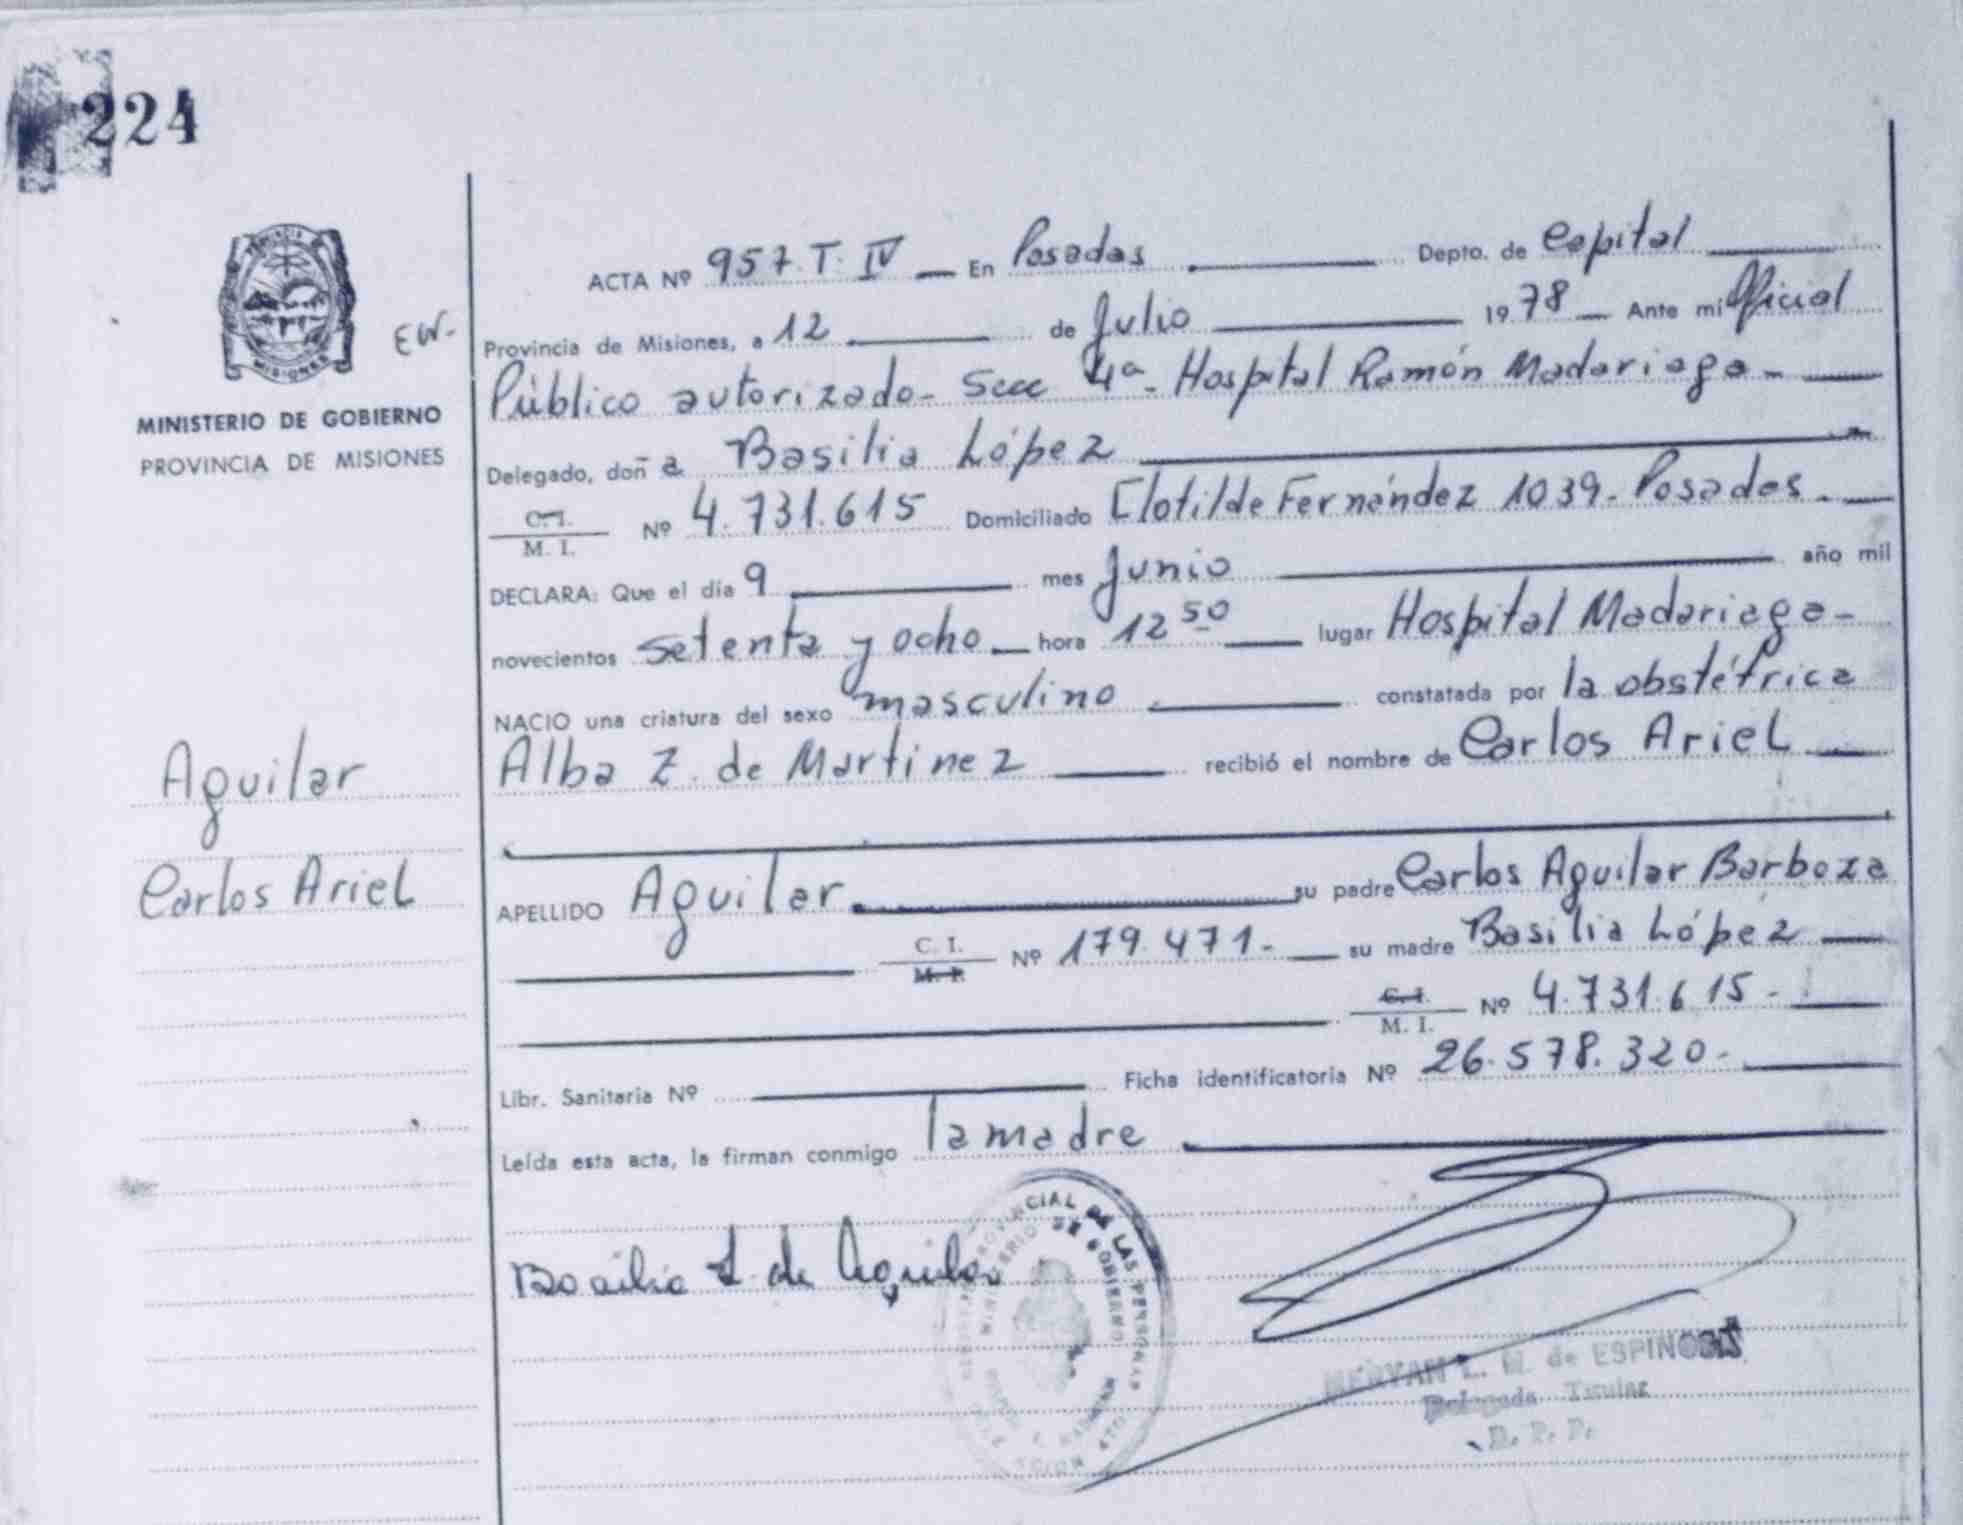 224
PROVINCIA
MISIONES
MINISTERIO DE GOBIERNO
PROVINCIA DE MISIONES
EW-
Aguilar
Carlos Ariel
ACTA Nº 957. T. IV En Posadas Depto. de Capital
Provincia de Misiones, a 12 de Julio 1978 Ante mi Oficial
Público autorizado- Secc 4ª- Hospital Ramón Madariaga-
Delegado, doña Basilia López
C. I. / M. I. Nº 4.731.615 Domiciliado Clotilde Fernández 1039- Posadas.
DECLARA: Que el día 9 mes Junio año mil
novecientos setenta y ocho hora 12 50 lugar Hospital Madariaga-
NACIO una criatura del sexo masculino constatada por la obstétrica
Alba Z. de Martinez recibió el nombre de Carlos Ariel
APELLIDO Aguilar su padre Carlos Aguilar Barboza
C. I. / M. I. Nº 179.471- su madre Basilia López
C. I. / M. I. Nº 4.731.615-
Libr. Sanitaria Nº Ficha identificatoria Nº 26.578.320-
Leída esta acta, la firman conmigo la madre
Basilia L. de Aguilar
PROVINCIAL DE LAS PERSONAS
MINISTERIO DE GOBIERNO
L. M. de ESPINOSA
Delegada Titular
R. P. P.